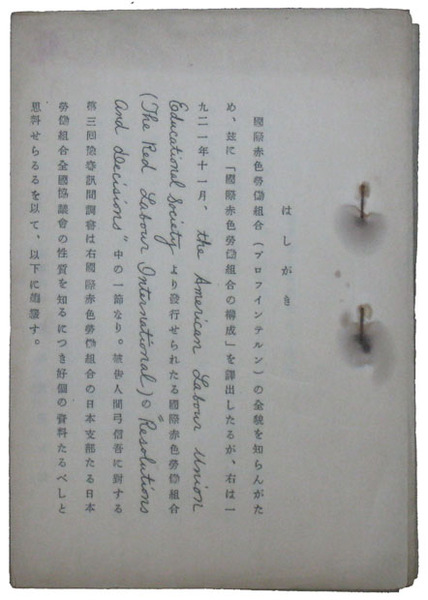 はしがき
國際赤色勞働組合(プロフインテルン)の全貌を知らんがた
め、玆に「國際赤色勞働組合の構成」を譯出したるが、右は一
九三一年十一月、the American Labour Union
Educational Society より發行せられたる國際赤色勞働組合
(The Red Labour International)の "Resolutions
and decisions" 中の一節なり。被告人間弓信吾に對する
第三回豫審訊問調書は右國際赤色勞働組合の日本支部たる日本
勞働組合全國協議會の性質を知るにつき好個の資料たるべしと
思料せらるるを以て、以下に飜譯す。